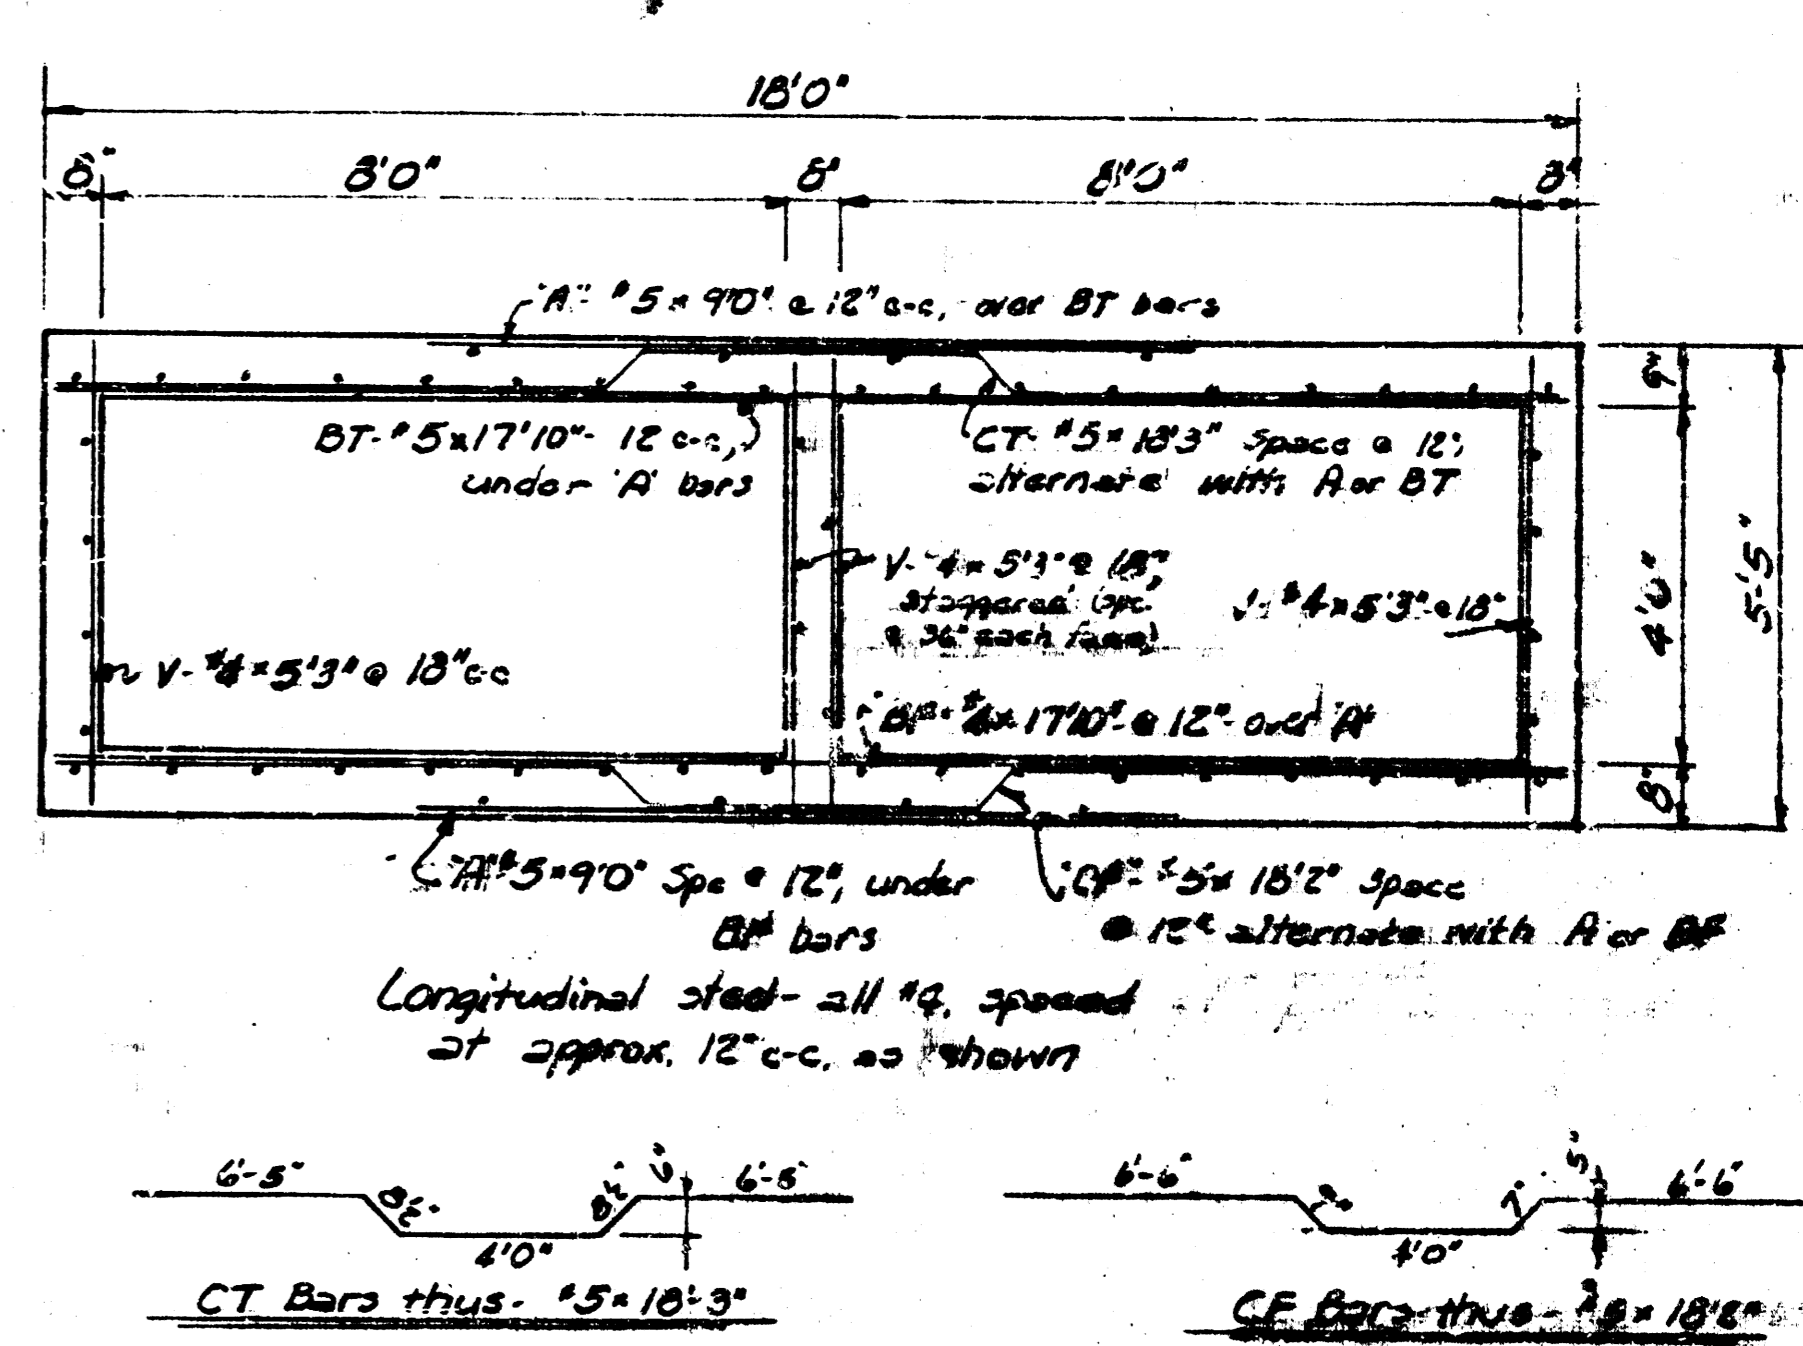 18'0"
8" 8'0" 8" 8'0" 8"
"A"- #5 x 9'0" @ 12" c-c, over BT bars
9"
BT- #5x17'10"- 12 c-c,
under 'A' bars
CT- #5 x 18'3" space @ 12",
alternate with A or BT
V- #4 x 5'3" @ 18",
staggered (spc.
@ 36" each face)
V- #4 x 5'3" @ 18"
4'0"
5'-5"
V- #4 x 5'3" @ 18" c-c
BF- #4x 17'10"- @ 12"- over 'A'
8"
"A" #5x9'0" Spc @ 12", under
BF bars
"CF"- #5x 18'2" space
@ 12" alternate with A or BF
Longitudinal steel- all #4, spaced
at approx. 12" c-c, as shown
6'-5" 8½" 4'0" 8½" 6" 6'-5"
CT Bars thus- #5x 18'-3"
6'-6" 7" 4'0" 7" 5" 6'-6"
CF Bars thus- #5x 18'2"